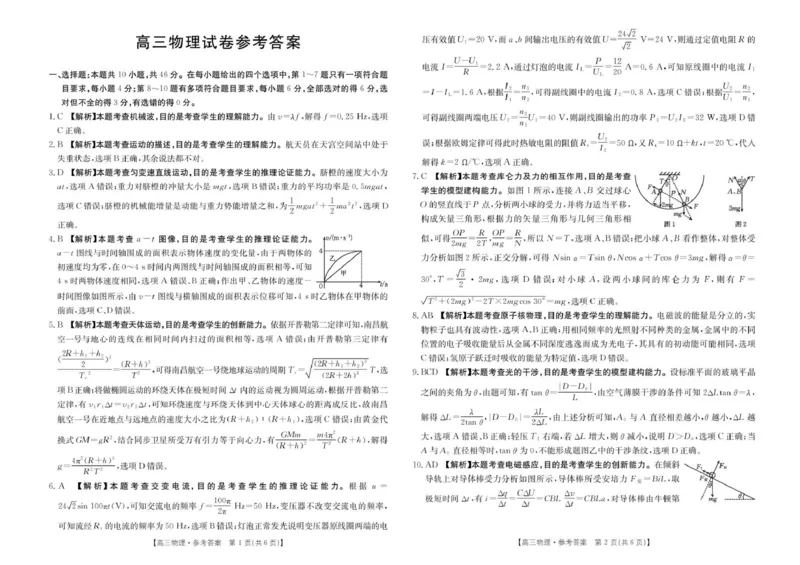 高三物理试卷参考答案
一、选择题:本题共10小题,共46分。在每小题给出的四个选项中,第1~7题只有一项符合题
目要求,每小题4分;第8~10题有多项符合题目要求,每小题6分,全部选对的得6分,选
对但不全的得3分,有选错的得0分。
1.C 【解析】本题考查机械波,目的是考查学生的理解能力。由v=λf,解得f=0.25 Hz,选项
C正确。
2.B 【解析】本题考查运动的描述,目的是考查学生的理解能力。航天员在天宫空间站中处于
失重状态,选项B正确,其余说法都不对。
3.D 【解析】本题考查匀变速直线运动,目的是考查学生的推理论证能力。脐橙的速度大小为
at,选项A错误;重力对脐橙的冲量大小是mgt,选项B错误;重力的平均功率是0.5mgat,
选项C错误;脐橙的机械能增量是动能与重力势能增量之和,为1/2 mgat²+1/2 ma²t²,选项D
正确。
4.B 【解析】本题考查a-t图像,目的是考查学生的推理论证能力。
a-t图线与时间轴围成的面积表示物体速度的变化量,由于两物体的
初速度均为零,在0~4 s时间内两图线与时间轴围成的面积相等,可知
4 s时两物体速度相同,选项A错误、B正确;作出甲、乙物体的速度-
时间图像如图所示,由v-t图线与横轴围成的面积表示位移可知,4 s时乙物体在甲物体的
前面,选项C、D错误。
v/(m·s⁻¹)
4
乙
甲
0
4
t/s
5.B 【解析】本题考查天体运动,目的是考查学生的创新能力。依据开普勒第二定律可知,南昌航
空一号与地心的连线在相同时间内扫过的面积相等,选项A错误;由开普勒第三定律有
((2R+h₁+h₂)/2)³/T₁²=(R+h)³/T²,可得南昌航空一号绕地球运动的周期T₁=√((2R+h₁+h₂)³/(2R+2h)³) T,选
项B正确;将做椭圆运动的环绕天体在极短时间Δt内的运动视为圆周运动,根据开普勒第二
定律,有v₁r₁Δt=v₂r₂Δt,可知环绕速度与环绕天体到中心天体球心的距离成反比,故南昌
航空一号在近地点与远地点的速度大小之比为(R+h₂):(R+h₁),选项C错误;由黄金代
换式GM=gR²,结合同步卫星所受万有引力等于向心力,有GMm/(R+h)²=m4π²/T²(R+h),解得
g=4π²(R+h)³/R²T²,选项D错误。
6.A 【解析】本题考查交变电流,目的是考查学生的推理论证能力。根据u=
24√2 sin 100πt(V),可知交流电的频率f=100π/2π Hz=50 Hz,变压器不改变交流电的频率,
可知流经R₁的电流的频率为50 Hz,选项B错误;灯泡正常发光说明变压器原线圈两端的电
【高三物理·参考答案 第1页(共6页)】
压有效值U₁=20 V,而a、b间输出电压的有效值U=24√2/√2 V=24 V,则通过定值电阻R的
电流I=(U-U₁)/R=2.2 A,通过灯泡的电流I_L=P/U_L=12/20 A=0.6 A,可知原线圈中的电流I₁
=I-I_L=1.6 A,根据I₂/I₁=n₁/n₂,可得副线圈中的电流I₂=0.8 A,选项C错误;根据U₂/U₁=n₂/n₁,
可得副线圈两端电压U₂=n₂/n₁ U₁=40 V,则副线圈输出的功率P₂=U₂I₂=32 W,选项D错
误;根据欧姆定律可得此时热敏电阻的阻值R₁=U₂/I₂=50 Ω,又R₁=10 Ω+kt,t=20 ℃,代入
解得k=2 Ω/℃,选项A正确。
7.C 【解析】本题考查库仑力及力的相互作用,目的是考查
学生的模型建构能力。如图1所示,连接A、B交过球心
O的竖直线于P点,分析两小球的受力,并将力适当平移,
构成矢量三角形,根据力的矢量三角形与几何三角形相
图1
图2
似,可得OP/2mg=R/2T,OP/mg=R/N,所以N=T,选项A、B错误;把小球A、B看作整体,对整体受
力分析如图2所示,正交分解,可得Nsin α=Tsin θ,Ncos α+Tcos θ=3mg,解得α=θ=
30°,T=√3/2·2mg,选项D错误;对小球A,设两小球间的库仑力为F,则有F=
√(T²+(2mg)²-2T×2mgcos 30°)=mg,选项C正确。
8.AB 【解析】本题考查原子核物理,目的是考查学生的理解能力。电磁波的能量是分立的,实
物粒子也具有波动性,选项A、B正确;用相同频率的光照射不同种类的金属,金属中的不同
位置的电子吸收能量后从金属不同深度逃逸而成为光电子,其具有的初动能可能相同,选项
C错误;氢原子跃迁时吸收的能量为特定值,选项D错误。
9.BCD 【解析】本题考查光的干涉,目的是考查学生的模型建构能力。设标准平面的玻璃平晶
之间的夹角为θ,由题可知,有tan θ=|D-D₀|/L,由空气薄膜干涉的条件可知2ΔLtan θ=λ,
解得ΔL=λ/2tan θ,|D-D₀|=λL/2ΔL,由上述分析可知,A₀与A直径相差越小,θ越小,ΔL越
大,选项A错误、B正确;轻压T₂右端,若ΔL增大,则θ减小,说明D>D₀,选项C正确;当
A与A₀直径相等时,tan θ为0,不能形成题图乙中的干涉条纹,选项D正确。
10.AD 【解析】本题考查电磁感应,目的是考查学生的创新能力。在倾斜
导轨上对导体棒受力分析如图所示,导体棒所受安培力F安=BiL,取
极短时间Δt,有i=Δq/Δt=CΔU/Δt=CBLΔv/Δt=CBLa,对导体棒由牛顿第
mg
θ
【高三物理·参考答案 第2页(共6页)】